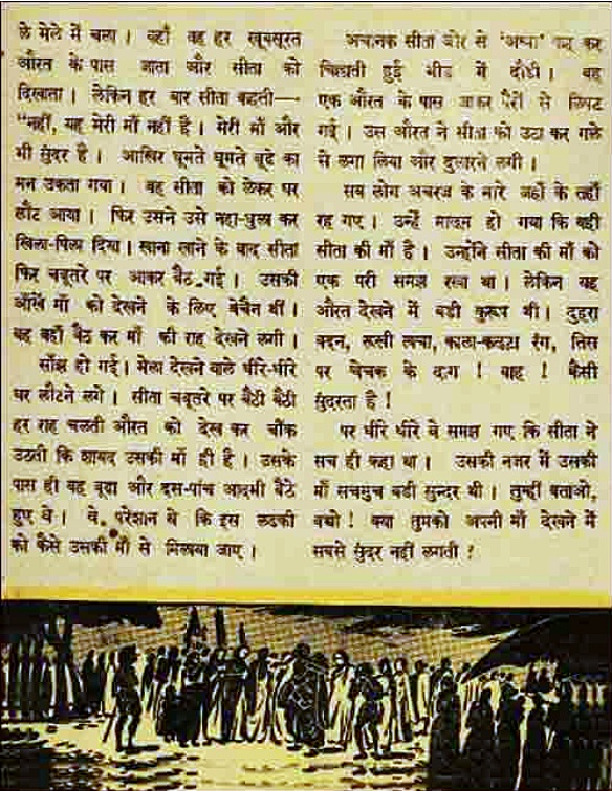 ले मेले में चला। वहाँ वह हर खूबसूरत
औरत के पास जाता और सीता को
दिखाता। लेकिन हर बार सीता कहती—
"नहीं, यह मेरी माँ नहीं है। मेरी माँ और
भी सुंदर है। आखिर घूमते घूमते बूढे का
मन उकता गया। वह सीता को लेकर घर
लौट आया। फिर उसने उसे नहा-धुला कर
खिला-पिला दिया। खाना खाने के बाद सीता
फिर चबूतरे पर आकर बैठ गई। उसकी
आँखें माँ को देखने के लिए बेचैन थीं।
वह वहाँ बैठ कर माँ की राह देखने लगी।
साँझ हो गई। मेला देखने वाले धीरे-धीरे
घर लौटने लगे। सीता चबूतरे पर बैठी बैठी
हर राह चलती औरत को देख कर चौंक
उठती कि शायद उसकी माँ ही है। उसके
पास ही वह बूढा और दस-पांच आदमी बैठे
हुए थे। वे परेशान थे कि इस लडकी
को कैसे उसकी माँ से मिलाया जाए।
अचानक सीता जोर से 'अम्मा' कह कर
चिल्लाती हुई भीड में दौडी। वह
एक औरत के पास जाकर पैरों से लिपट
गई। उस औरत ने सीता को उठा कर गले
से लगा लिया और दुलारने लगी।
सब लोग अचरज के मारे जहाँ के तहाँ
रह गए। उन्हें मालूम हो गया कि यही
सीता की माँ है। उन्होंने सीता की माँ को
एक परी समझ रखा था। लेकिन यह
औरत देखने में बडी कुरूप थी। दुहरा
बदन, रूखी त्वचा, काला-कलूटा रंग, तिस
पर चेचक के दाग! वाह! कैसी
सुंदरता है!
पर धीरे धीरे वे समझ गए कि सीता ने
सच ही कहा था। उसकी नजर में उसकी
माँ सचमुच बडी सुन्दर थी। तुम्हीं बताओ,
बच्चो! क्या तुमको अपनी माँ देखने में
सबसे सुंदर नहीं लगती?